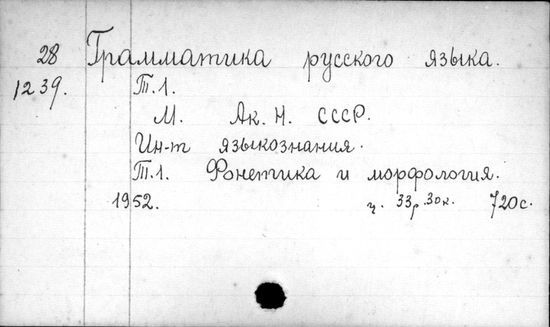 28 Грамматика русского языка.
1239. Т.1.
М. Ак. Н. СССР.
Ин-т языкознания.
Т.1. Фонетика и морфология.
1952. ц. 33р.30к. 720с.